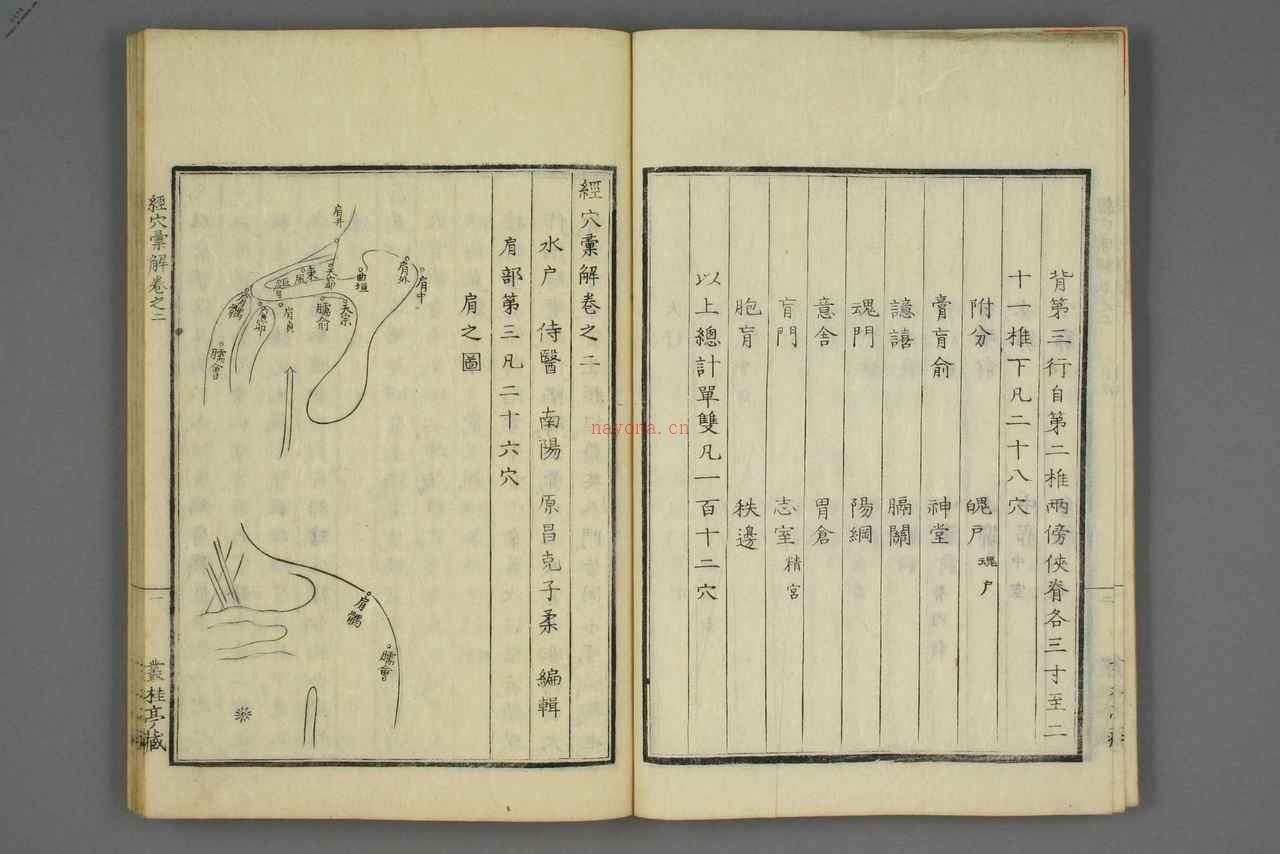 背第三行自第二椎兩傍俠脊各三寸至二
十一椎下凡二十八穴
附分 魄戶 魂戶
膏肓俞 神堂
譩譆 膈關
魂門 陽綱
意舍 胃倉
肓門 志室 精宮
胞肓 秩邊
以上總計單雙凡一百十二穴
經穴彙解卷之二
水戶 侍醫 南陽 原昌克子柔 編輯
肩部第三凡二十六穴
肩之圖
肩井
肩中
肩外
曲垣
天宗
天窌
秉風
臑俞
巨骨
肩貞
肩窌
肩髃
臑會
肩髃
臑會
經穴彙解卷之二
一
叢桂亭藏
nayona.cn